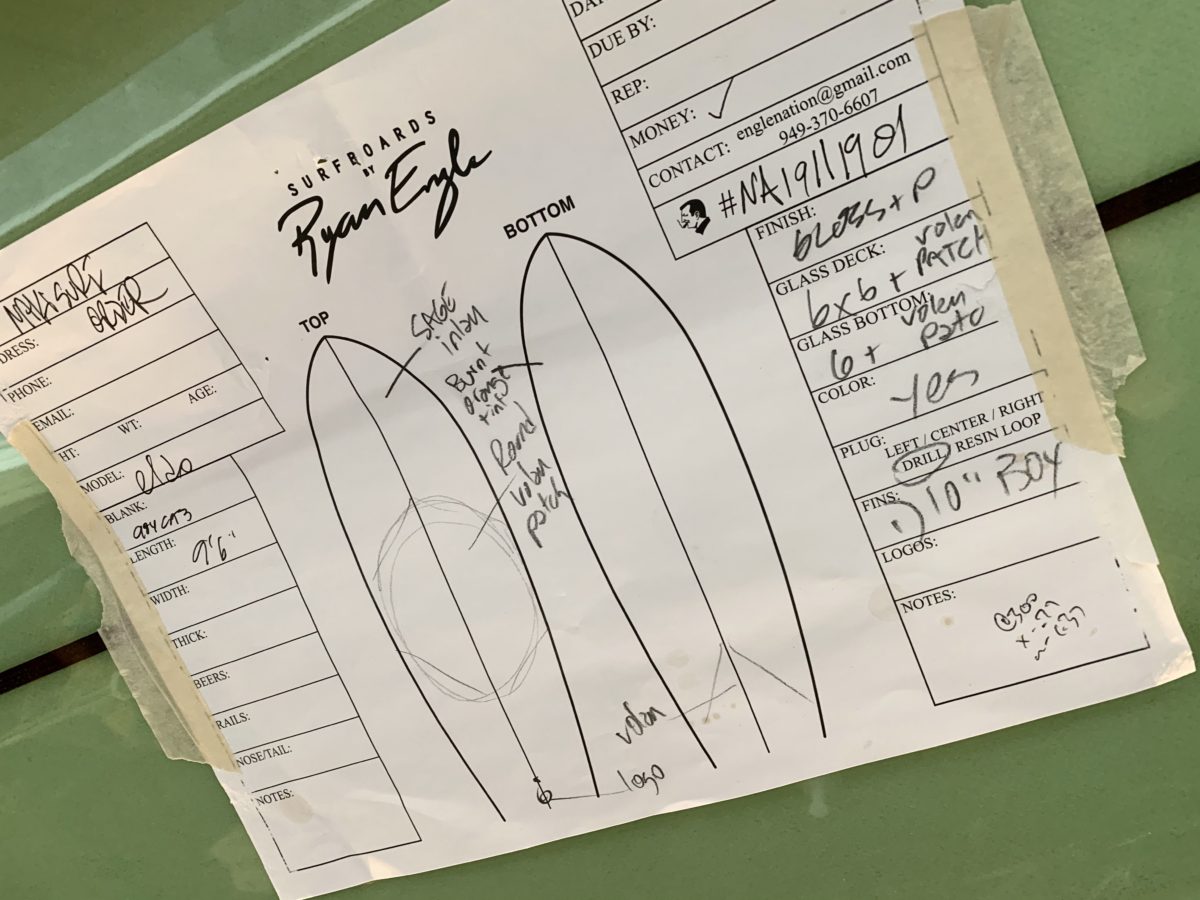 SURFBOARDS
BY
Ryan Engle
DUE BY:
REP:
MONEY: ✓
CONTACT: englenation@gmail.com
949-370-6607
#NA1911901
DRESS:
PHONE:
EMAIL:
HT: WT: AGE:
MODEL:
BLANK:
LENGTH: 9'6"
WIDTH:
THICK:
BEERS:
RAILS:
NOSE/TAIL:
NOTES:
TOP
SAGE
inlay
Burnt
orange
Round
volan
patch
logo
BOTTOM
volan
FINISH: GLOSS + P
GLASS DECK: 6x6 + volan
PATCH
GLASS BOTTOM: 6 + volan
COLOR: yes
PLUG: LEFT / CENTER / RIGHT
DRILL / RESIN LOOP
FINS: 10" BOX
LOGOS:
NOTES: